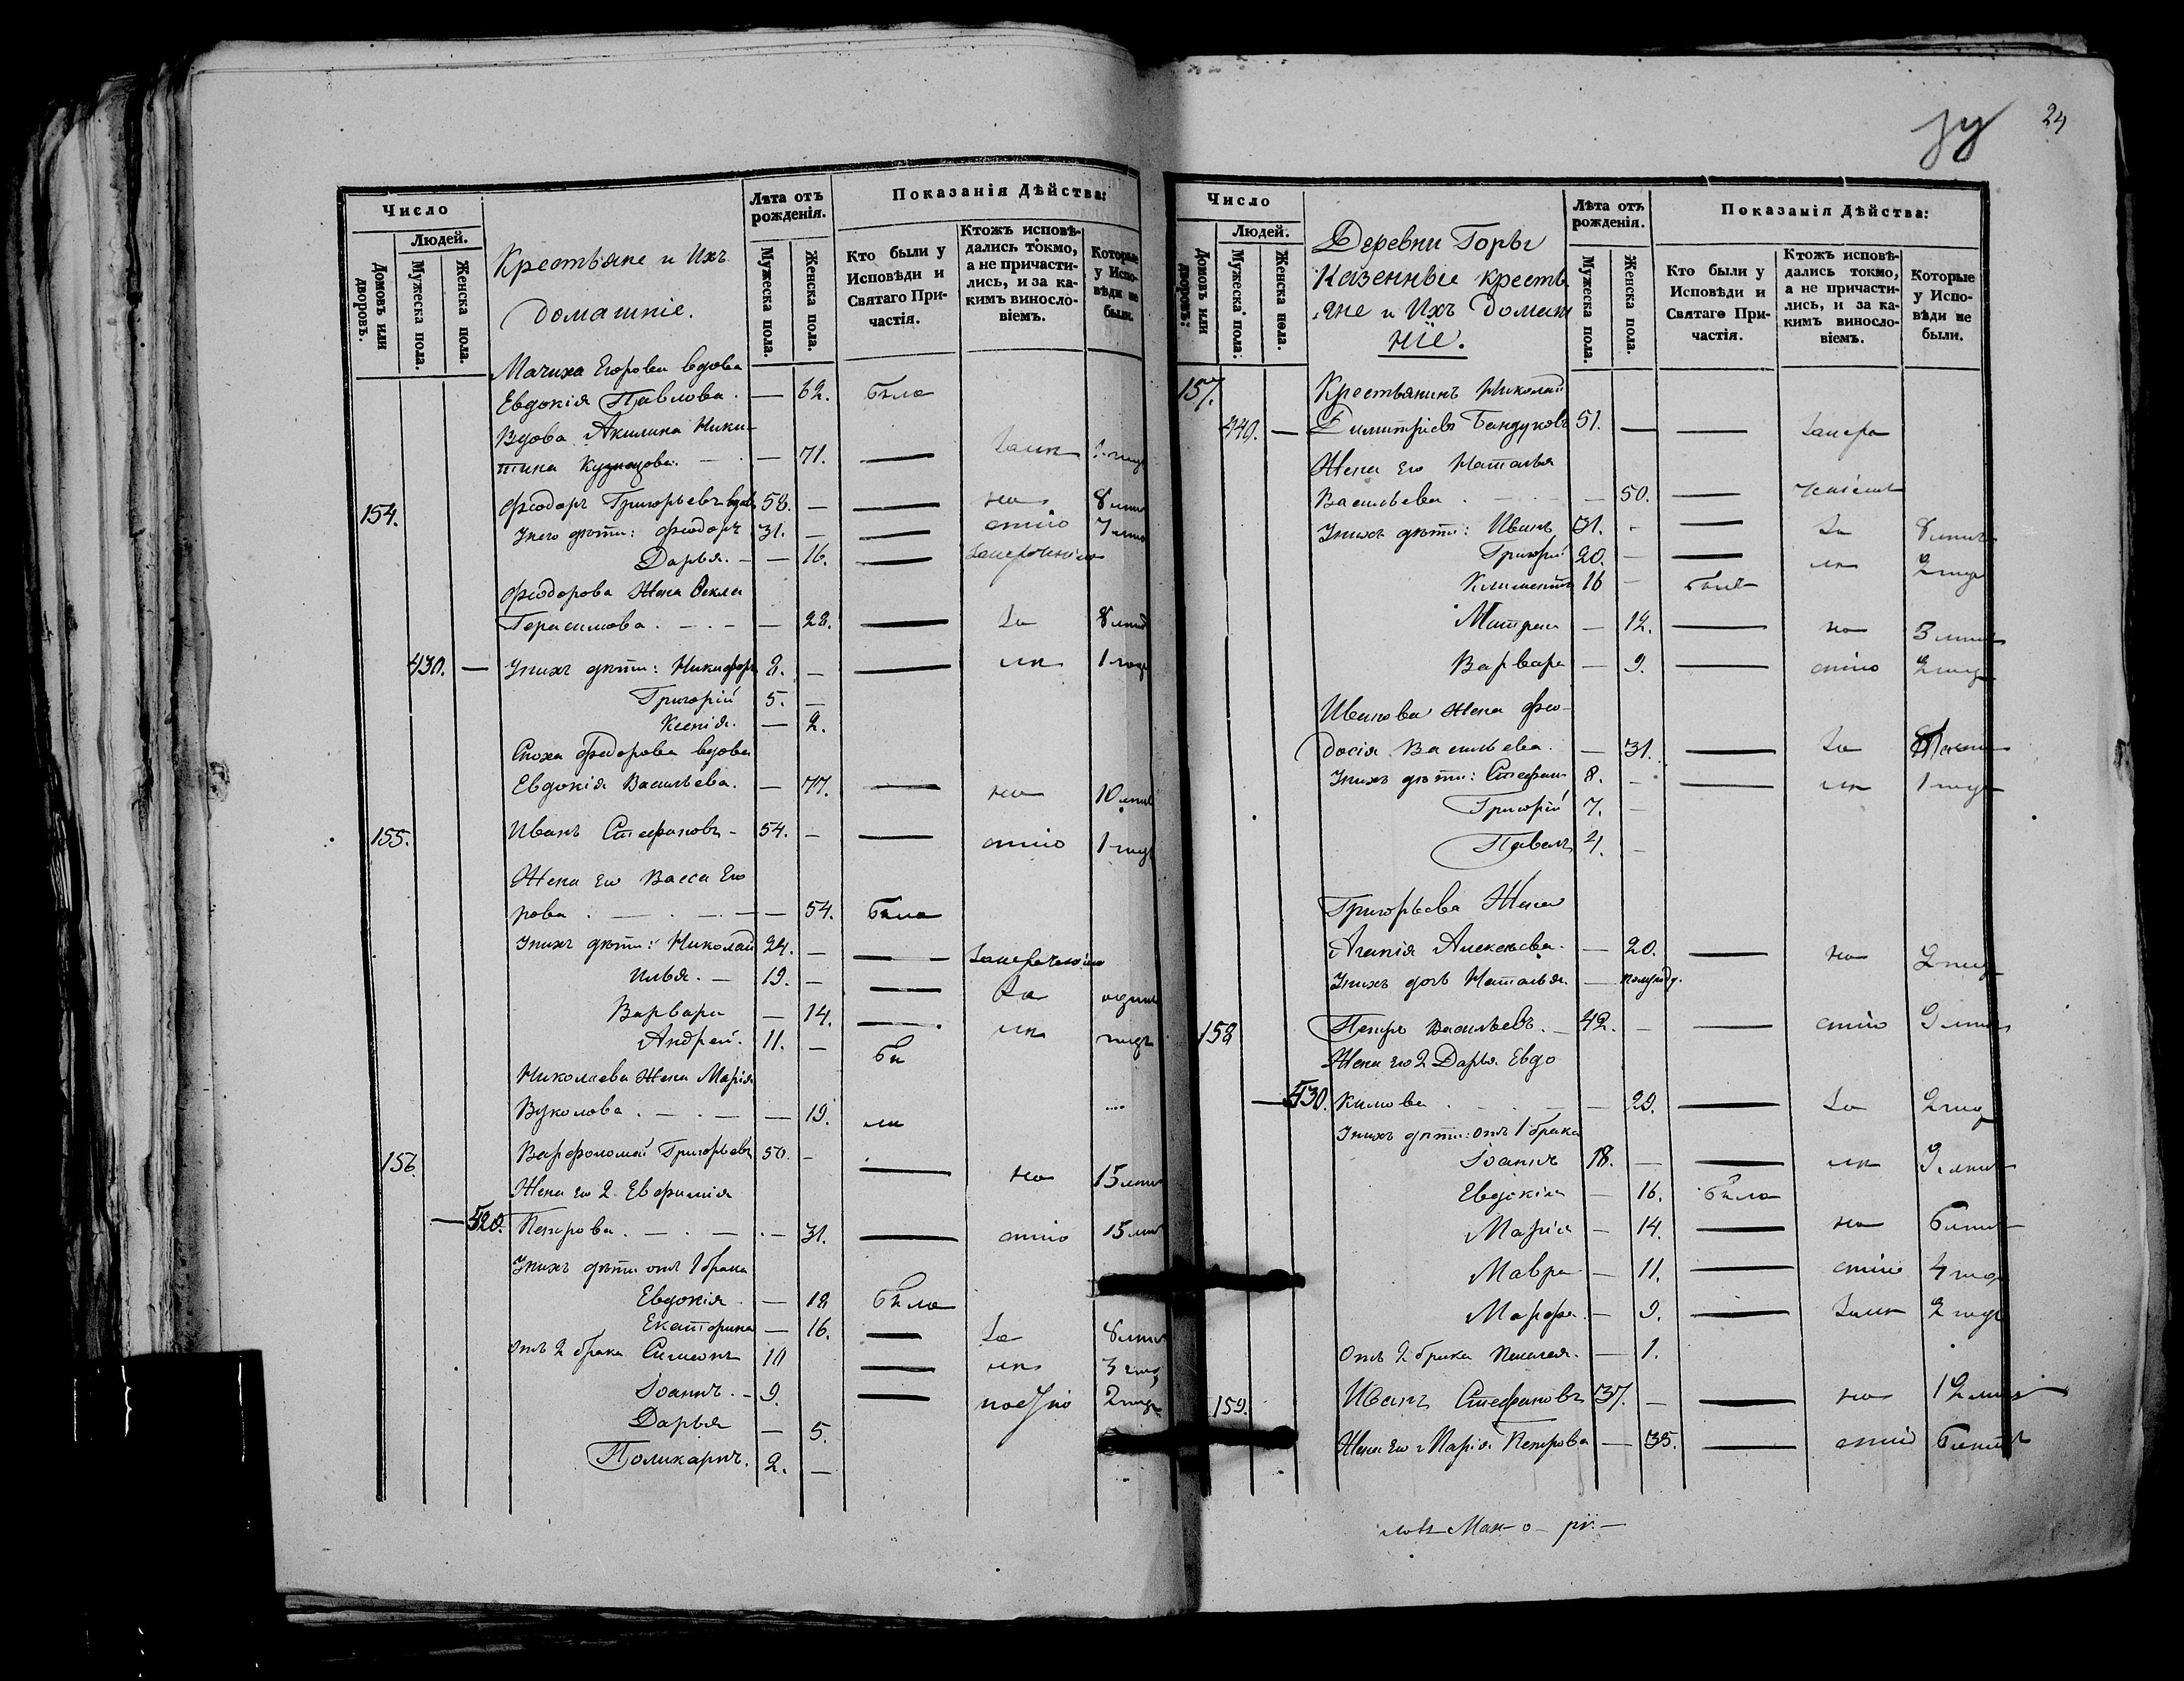 Число
Людей.
Домовъ или дворовъ.
Мужеска пола.
Женска пола.
Крестьяне и Ихъ
домашніе.
Лѣта отъ рожденія.
Мужеска пола.
Женска пола.
Показанія Дѣйства:
Кто были у Исповѣди и Святаго Причастія.
Ктожъ исповѣдались токмо, а не причастились, и за какимъ винословіемъ.
Которые у Исповѣди не были.
Мачиха Егорова вдова
Евдокія Павлова. — 62. была
Вдова Акилина Ники-
тина Кузнецова. — 71. — за ик
154. Феодоръ Григорьевъ вдовъ 58. — — но 8 лѣт
У него дѣти: Феодоръ 31. — — стію 7 лѣт
Дарья. — 16. —
Феодорова Жена Фекла
Герасимова. — 28. — за 8 лѣт
430. — У нихъ дѣти: Никифоръ 8. — — ик 1 годъ
Григорій 5. —
Ксенія. — 2.
Сноха Феодорова вдова
Евдокія Васильева. — 77. — но 10 лѣт
155. Иванъ Стефановъ — 54. — — стію 1 годъ
Жена его Васса Его
рова — 54. была
У нихъ дѣти: Николай 24. — —
Илья. — 19. — — за одинъ
Варвара — 14. — ик годъ
Андрей. 11. — бы
Николаева Жена Марія
Вуколова. — 19. ли
156. Варфоломей Григорьевъ 50. — — но 15 лѣт
Жена его 2. Евфимія
— 520. Петрова. — 31. — стію 15 лѣт
У нихъ дѣти отъ 1 брака
Евдокія — 18 была
Екатерина — 16. — за 8 лѣт
Отъ 2 брака Симеонъ 10 — ик 3 год
Іоаннъ. — 9. — 2 года
Дарья — 5.
Поликарпъ. 2. —
24
Число
Людей.
Домовъ или дворовъ:
Мужеска пола.
Женска пола.
Деревни Горы
Казенные кресть
яне и Ихъ Домаш
ніе.
Лѣта отъ рожденія.
Мужеска пола.
Женска пола.
Показанія Дѣйства:
Кто были у Исповѣди и Святаго Причастія.
Ктожъ исповѣдались токмо, а не причастились, и за какимъ винословіемъ.
Которые у Исповѣди не были.
157. Крестьянинъ Николай
440. — Димитріевъ Бандуковъ 51. — —
Жена его Наталья
Васильева — 50. —
У нихъ дѣти: Иванъ 31. — — за 8 лѣтъ
Григорій 20. — — ик 2 года
Климентъ 16 — былъ
Матрена — 12. — но 3 лѣт
Варвара — 9. — стію 2 года
Иванова жена Фео-
досія Васильева. — 31. — за
У нихъ дѣти: Стефанъ 8. — — ик 1 годъ
Григорій 7. —
Павелъ 4. —
Григорьева Жена
Агапія Алексѣева. — 20. — но 2 года
У нихъ дочь Наталья. — полугоду.
158 Петръ Васильевъ. — 42. — — стію 9 лѣт
Жена его 2 Дарья Евдо
— 530. кимова — 29. — за 2 год
У нихъ дѣти: отъ 1 брака
Іоаннъ 18. — — ик 9 лѣтъ
Евдокія — 16. была
Марія — 14. — но 6 лѣтъ
Мавра — 11. — стію 4 год
Марфа — 9. — за ик 2 года
Отъ 2 брака Пелагея. — 1.
159. Иванъ Стефановъ 37. — — но 12 лѣт
Жена его Марія Петрова — 35. — стію 6 лѣтъ